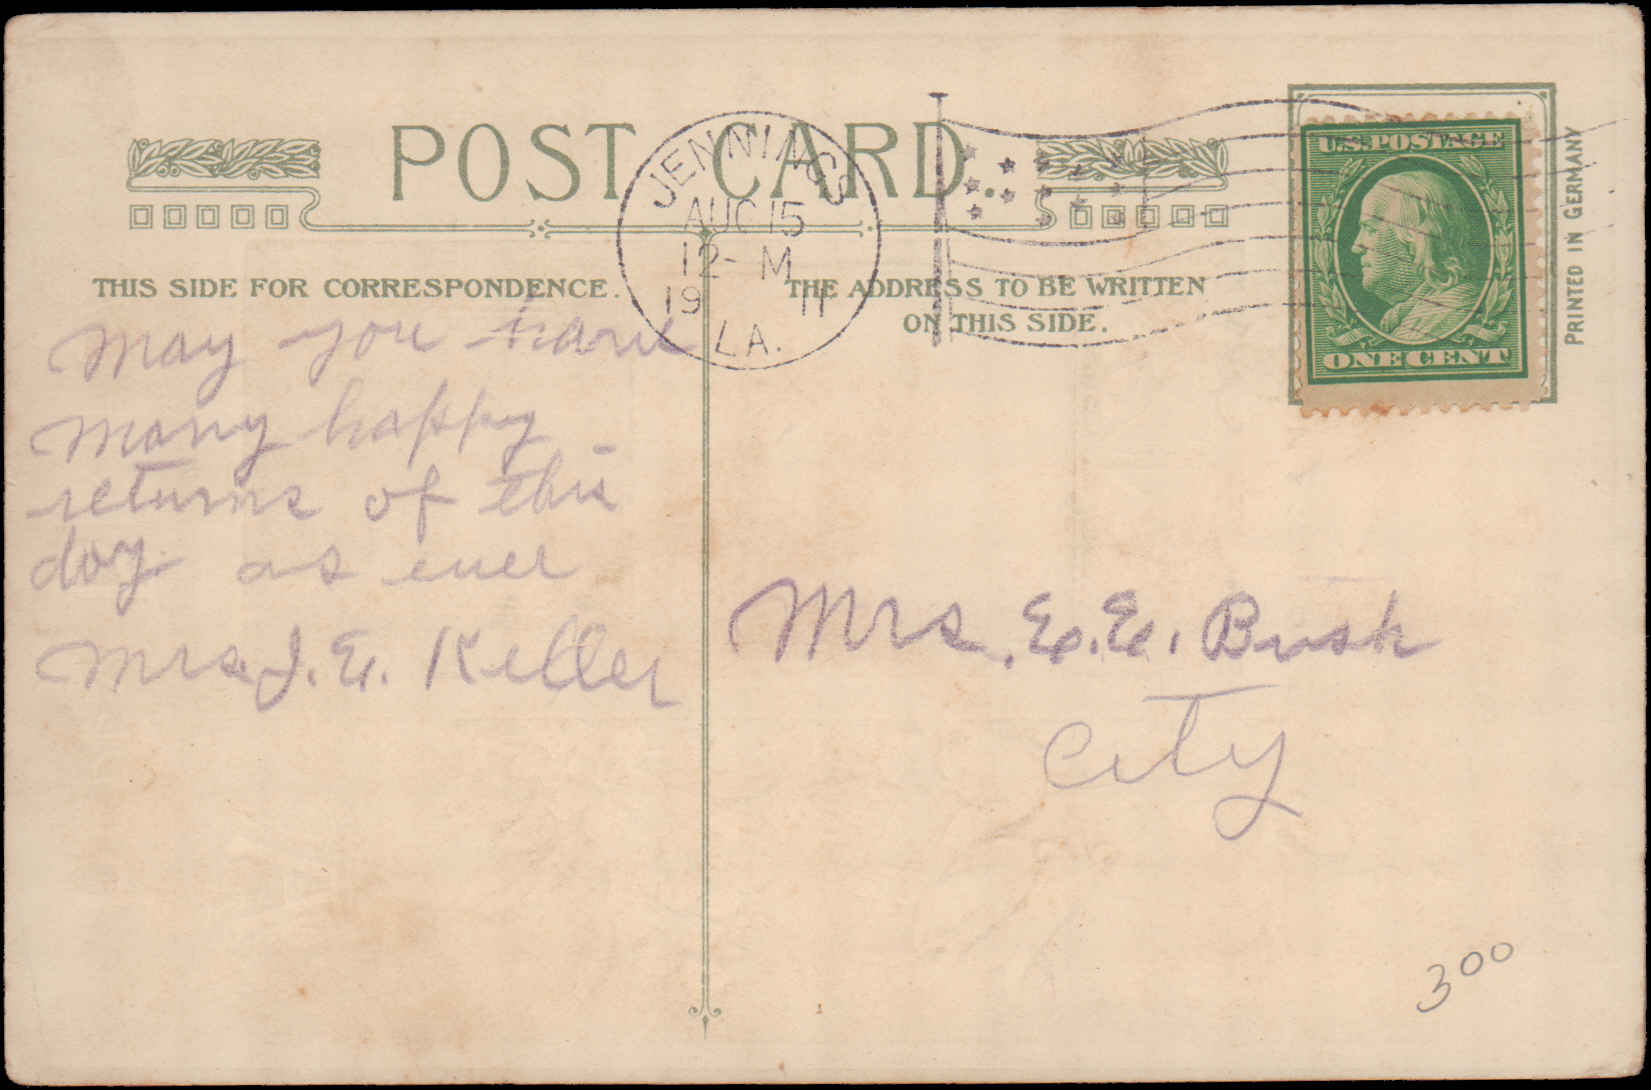 POST CARD.
JENNINGS
AUG 15
12- M
19 11
LA.
U.S. POSTAGE
ONE CENT
PRINTED IN GERMANY
THIS SIDE FOR CORRESPONDENCE.
THE ADDRESS TO BE WRITTEN
ON THIS SIDE.
May you have
many happy
returns of this
day as ever
Mrs. J. E. Keller
Mrs. E. E. Bush
City
3 00